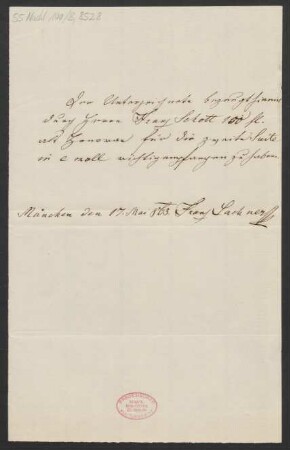 55 Nachl. 100/B, 8528
Der Unterzeichnete bezeugt hiermit
durch Herrn Franz Schott 100 fl.
als Honorar für die zweite Suite
in e moll richtig empfangen zu haben
München den 17. Mai 863. Franz Lachner